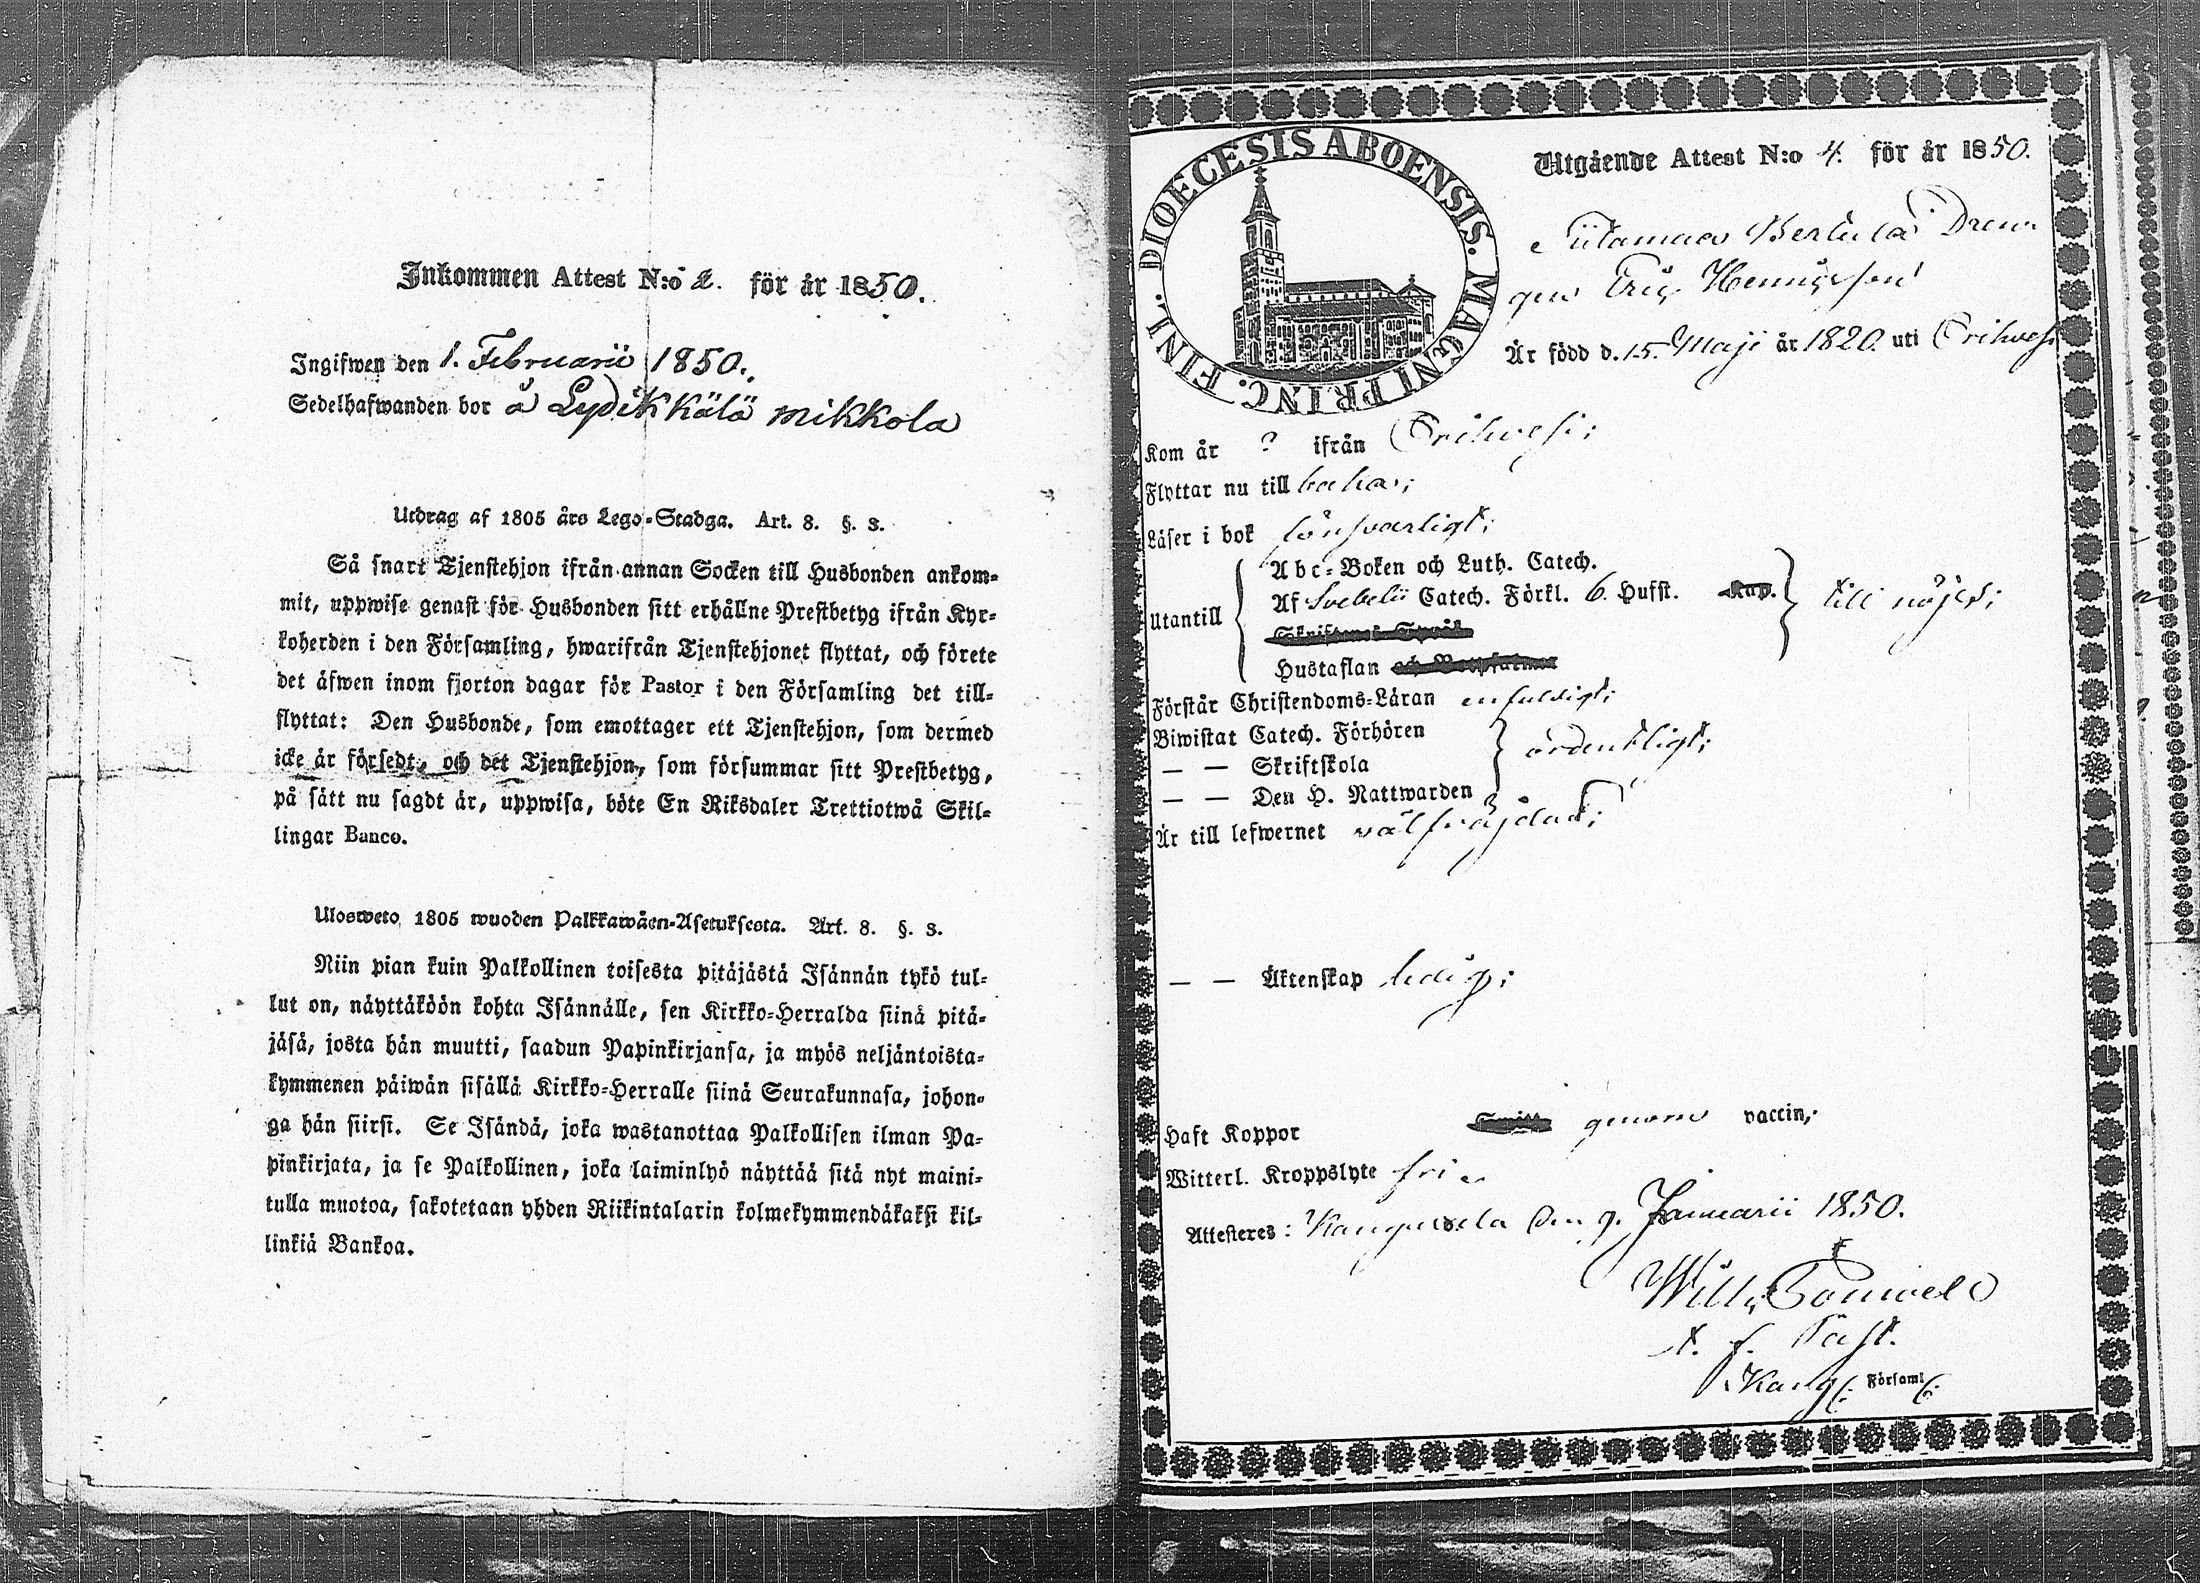 Inkommen Attest N:o 2. för år 1850.
Ingifwen den 1. Februarii 1850.
Sedelhafwanden bor å Lydikkälä mikkola
Utdrag af 1805 års Lego-Stadga. Art. 8. §. 3.
Så snart Tjenstehjon ifrån annan Socken till Husbonden ankom-
mit, uppwise genast för Husbonden sitt erhållne Prestbetyg ifrån Kyr-
koherden i den Församling, hwarifrån Tjenstehjonet flyttat, och förete
det äfwen inom fjorton dagar för Pastor i den Församling det till-
flyttat: Den Husbonde, som emottager ett Tjenstehjon, som dermed
icke är försedt, och det Tjenstehjon, som försummar sitt Prestbetyg,
på sätt nu sagdt är, uppwisa, böte En Riksdaler Trettiotwå Skil-
lingar Banco.
Ulosweto 1805 wuoden Palkkawäen-Asetuksesta. Art. 8. §. 3.
Niin pian kuin Palkollinen toisesta pitäjästä Isännän tykö tul-
lut on, näyttäköön kohta Isännälle, sen Kirkko-Herralda siinä pitä-
jäsä, josta hän muutti, saadun Papinkirjansa, ja myös neljäntoista-
kymmenen päiwän sisällä Kirkko-Herralle siinä Seurakunnasa, johon-
ga hän siirsi. Se Isändä, joka wastanottaa Palkollisen ilman Pa-
pinkirjata, ja se Palkollinen, joka laiminlyö näyttää sitä nyt maini-
tulla muotoa, sakotetaan yhden Riikintalarin kolmekymmendäkaksi kil-
linkiä Bankoa.
DIOECESIS ABOENSIS. MAGNI PRINC. FINL.
Utgående Attest N:o 4. för år 1850.
Bertula Dren-
gen Eric Henricsson
Är född d. 15. Maji år 1820. uti Orihvesi
Kom år ? ifrån Orihvesi;
Flyttar nu till baka;
Läser i bok förswarligt;
Utantill
Abc-Boken och Luth. Catech.
Af Svebelii Catech. Förkl. 6. Hufst. Kap.
Hustaflan
till nöjes;
Förstår Christendoms-Läran enfaldigt;
Biwistat Catech. Förhören
— — Skriftskola
— — Den H. Nattwarden
ordentligt;
Är till lefwernet välfräjdad;
— — Äktenskap ledig;
Haft Koppor genom vaccin;
Witterl. Kroppslyte fri.
Attesteras: Kangasala den 9. Januarii 1850.
Wilh. Ponwell
t. f. Past.
Kang. Församl.